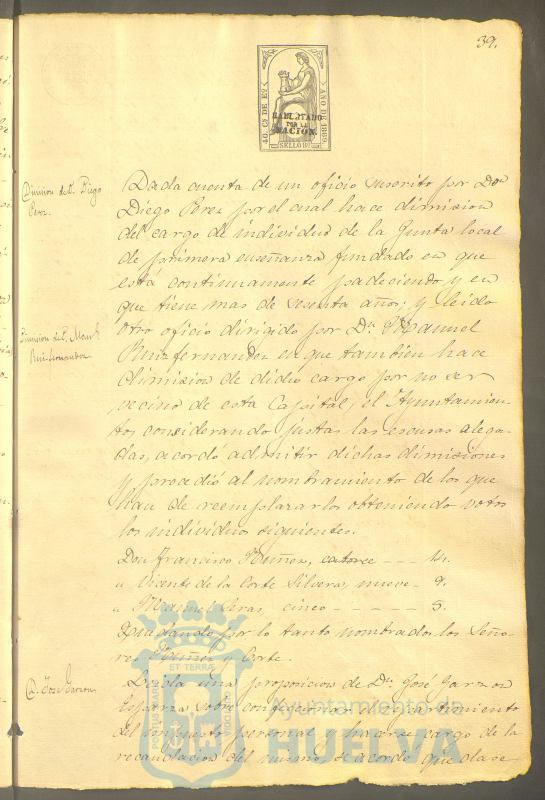 39.
40 Cs DE Eo
AÑO DE 1869
HABILITADO
POR LA
NACION.
SELLO 9º
Dimision de D. Diego
Perez.
Dada cuenta de un oficio suscrito por Don
Diego Perez por el cual hace dimision
del cargo de individuo de la Junta local
de primera enseñanza fundado en que
está continuamente padeciendo y en
que tiene mas de sesenta años; y leido
Dimision de D. Manl.
Ruizfernandez
otro oficio dirigido por Dn. Manuel
Ruizfernandez en que tambien hace
dimision de dicho cargo por no ser
vecino de esta Capital, el Ayuntamien-
to, considerando justas las escusas alega-
das, acordó admitir dichas dimisiones
y procedió al nombramiento de los que
han de reemplazarlos obteniendo votos
los individuos siguientes.
Don Francisco Nuñez, catorce --- 14.
" Vicente de la Corte Silvera, nueve - 9.
" Manuel Veras, cinco ----- 5.
Quedando por lo tanto nombrados los Seño-
res Nuñez y Corte.
D. José Garzon
Leida una proposicion de Dn. José Garzon
Esparza sobre confeccionar el repartimiento
del impuesto personal y hacerse cargo de la
recaudacion del mismo, se acordó que dase
PORTUS MARIS
ET TERRÆ
CUSTODIA
Ayuntamiento de
HUELVA